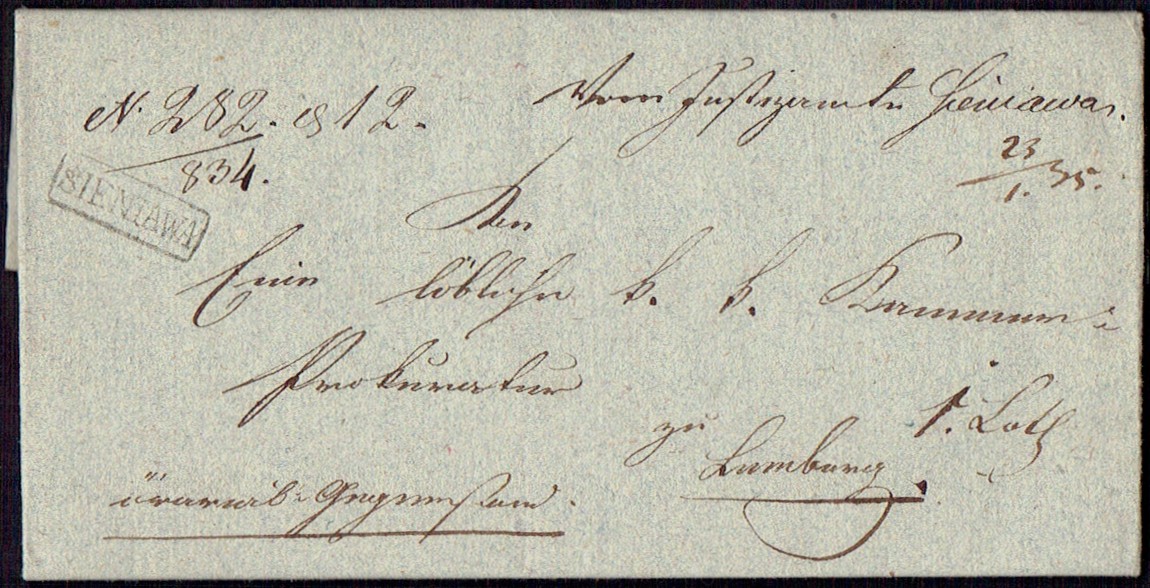 N. 282. es 12.
834.
Vom Justizamte Sieniawa.
23/1. 35.
SIENIAWA
An
Eine löbliche k. k. Kammer-
Prokuratur
zu
Lemberg
1. Loth
ärarial-Gegenstand.